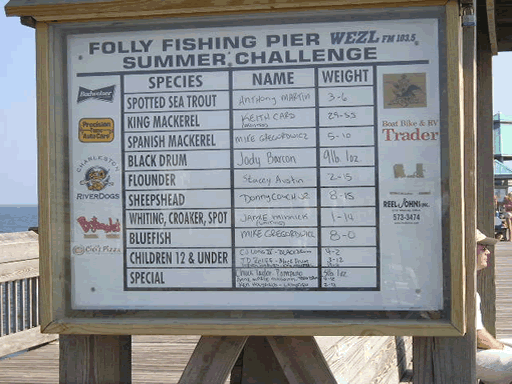 FOLLY FISHING PIER WEZL FM 103.5
SUMMER CHALLENGE
SPECIES NAME WEIGHT
SPOTTED SEA TROUT ANTHONY MARTIN 3-6
KING MACKEREL KEITH CARD
SPANISH MACKEREL MIKE GREGOROWICZ 5-10
BLACK DRUM Jody Barron 9lb 1oz
FLOUNDER Stacey Austin 2-15
SHEEPSHEAD DONNY COUCH JR 8-15
WHITING, CROAKER, SPOT JAMIE 1-14
BLUEFISH MIKE GREGOROWICZ 8-0
CHILDREN 12 & UNDER
SPECIAL Chuck Taylor Pompano 5lb 1oz
Budweiser
Precision Tune Auto Care
CHARLESTON
RIVERDOGS
Boat Bike & RV
Trader
REEL JOHN INC.
573-3474